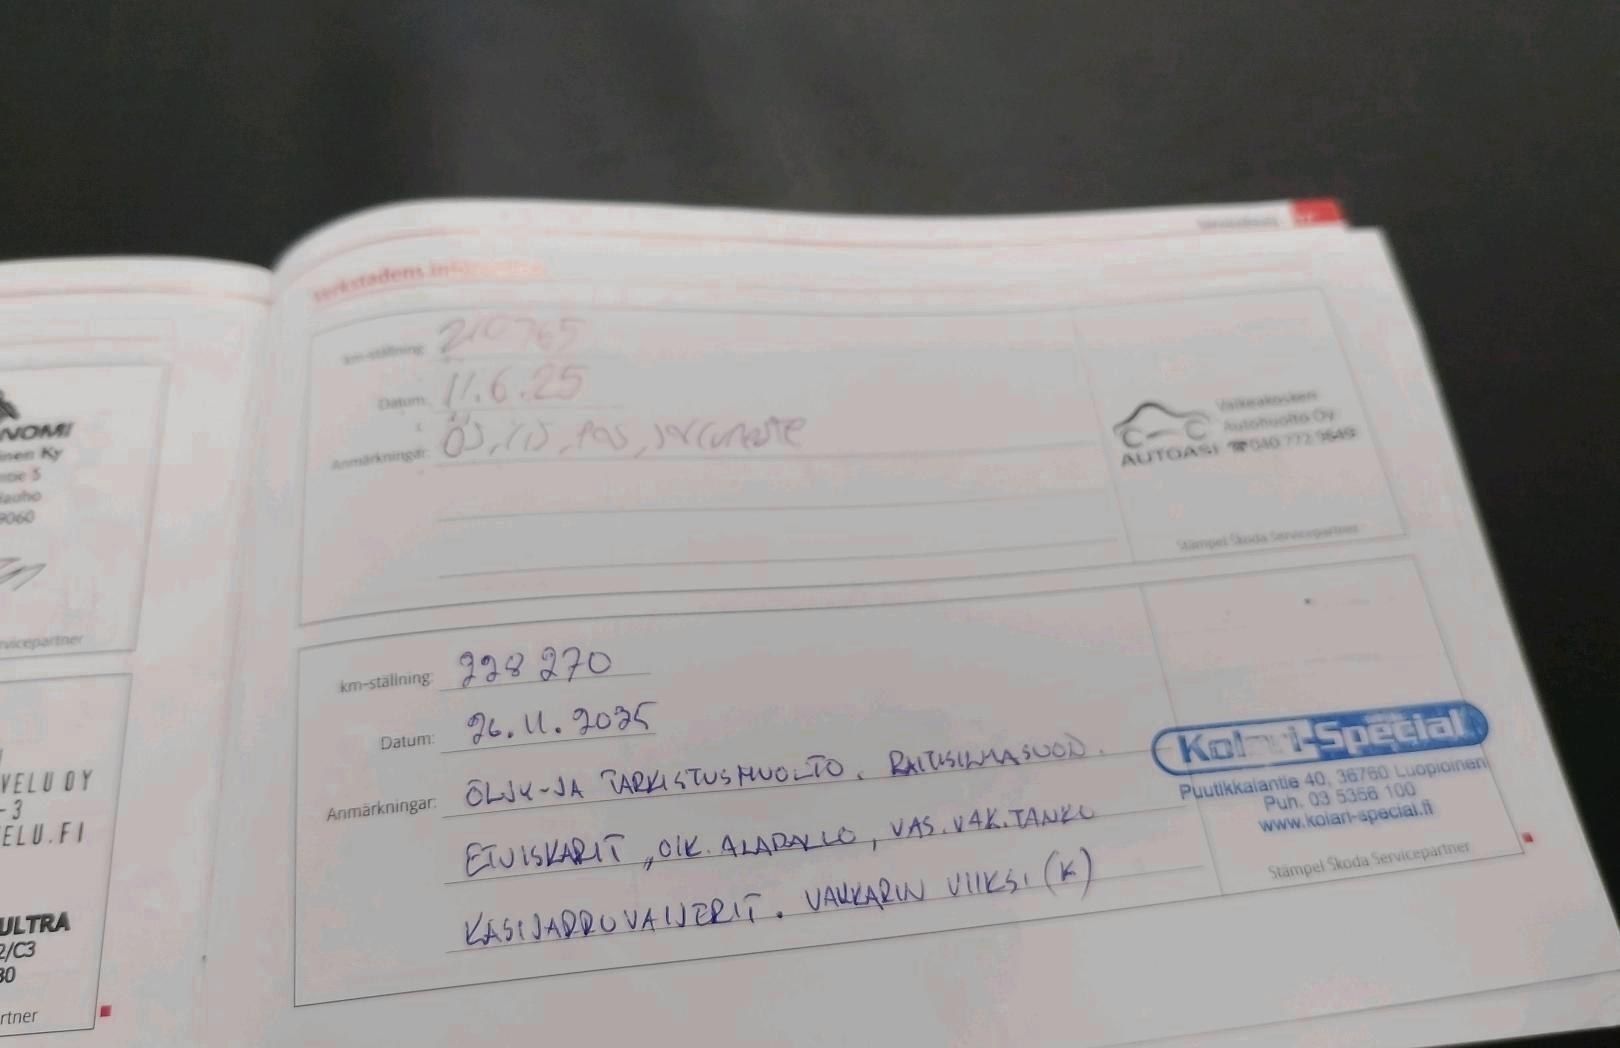 NOMI
nen Ky
tie 5
Hauho
9060
rvicepartner
VELU OY
-3
ELU.FI
ULTRA
2/C3
30
rtner
Verkstadens
km-ställning: 210765
Datum: 11.6.25
Anmärkningar: ÖS,
Valkeakosken
Autohuolto Oy
AUTOASI ☎040 772 9649
Stämpel Škoda Servicepartner
km-ställning: 228 270
Datum: 26.11.2025
Anmärkningar: ÖLJY-JA TARKISTUSHUOLTO. RAITISILMASUOD.
ETUISKARIT, OIK. ALAPALLO, VAS. VAK.TANKO
KÄSIJARRUVAIJERIT. VAKKARIN VIIKSI (K)
Kolari-Special
Puutikkalantie 40, 36760 Luopioinen
Puh. 03 5356 100
www.kolari-special.fi
Stämpel Škoda Servicepartner